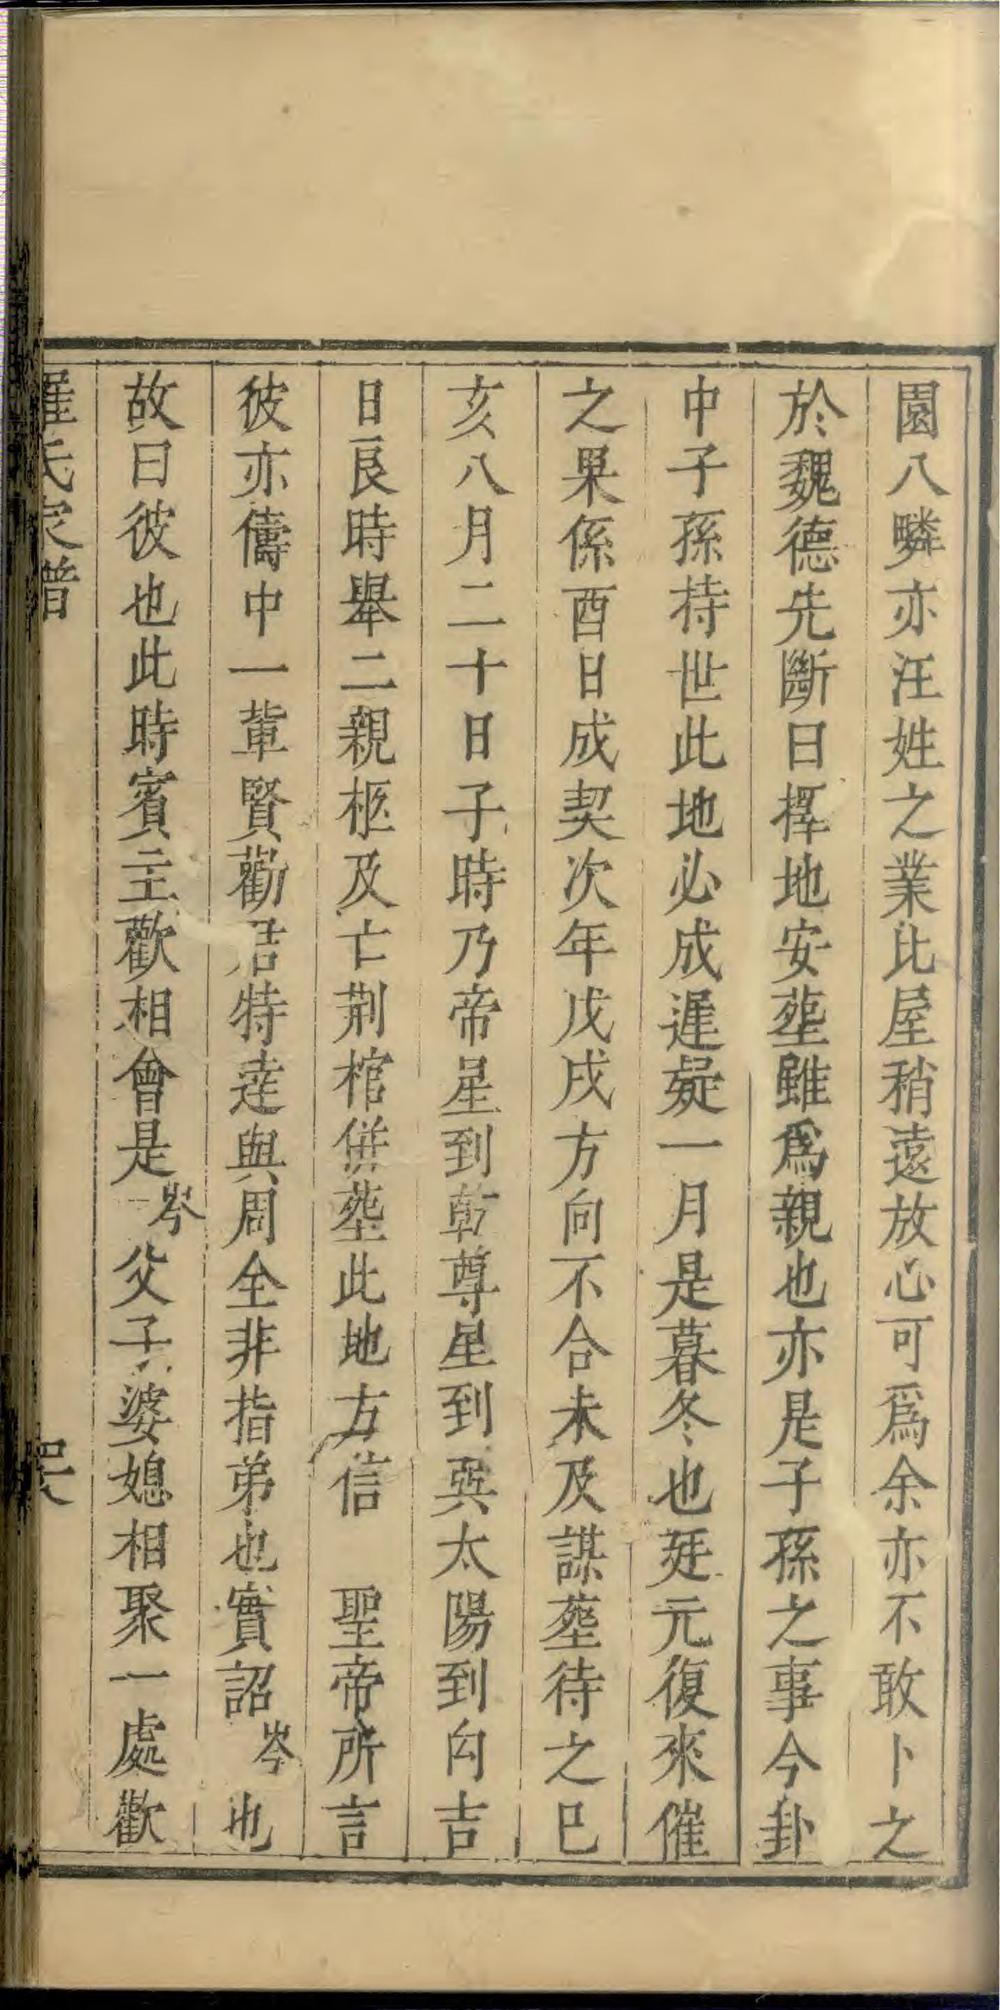 園八疄亦汪姓之業比屋稍遠放心可爲余亦不敢卜之
於魏德先斷曰擇地安塟雖爲親也亦是子孫之事今卦
中子孫持世此地必成遲疑一月是暮冬也廷元復來催
之果係酉日成契次年戊戌方向不合未及謀塟待之巳
亥八月二十日子時乃帝星到乾尊星到巽太陽到向吉
日良時舉二親柩及亡荆棺併塟此地方信　聖帝所言
彼亦儔中一輩賢勸君特達與周全非指弟也實詔岑也
故曰彼也此時賓主歡相會是岑父子婆媳相聚一處歡
羅氏家譜